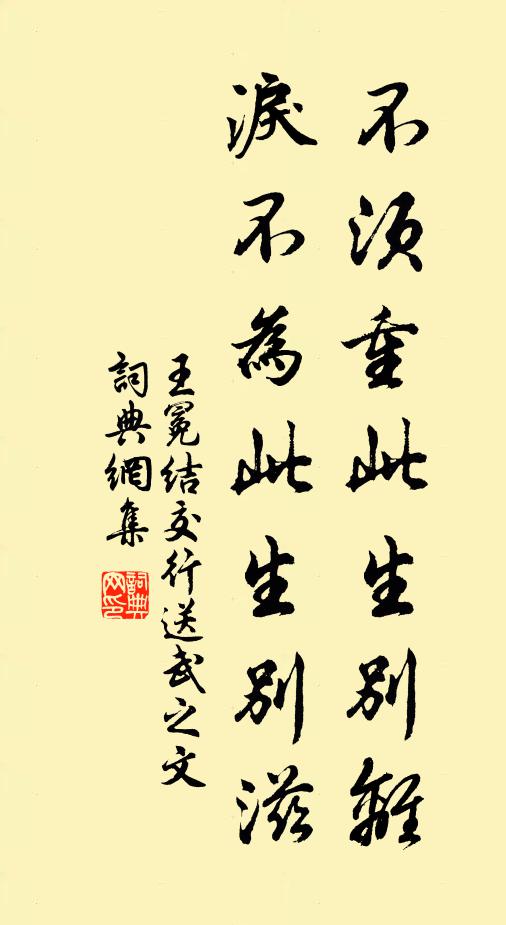 不須重此生別離
淚不為此生別滋
王冕結交行送武之文
詞典網集
詞典網印